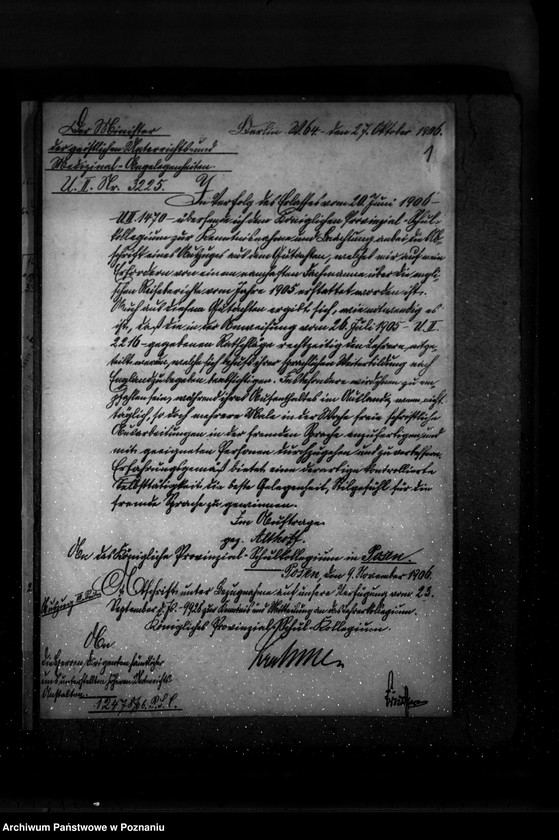 Der Minister
der geistlichen Unterrichts- und
Medizinal-Angelegenheiten
U. II. Nr. 3225.
Berlin W. 64 den 27. Oktober 1906.
1
In Verfolg des Erlasses vom 20. Juni 1906 -
U II 1470 - übersende ich dem Königlichen Provinzial-Schul-
kollegium zur Kenntnisnahme und Beachtung anbei die Ab-
schrift eines Auszuges aus dem Gutachten, welches mir auf mein
Erfordern von einem namhaften Fachmanne über die engli-
schen Reiseberichte vom Jahre 1905 erstattet worden ist.
Auch aus diesem Gutachten ergibt sich, wie notwendig es
ist, daß die in der Anweisung vom 26. Juli 1905 - U. II.
2216 - gegebenen Ratschläge rechtzeitig den Lehrern mitge-
teilt werden, welche sich behufs ihrer sprachlichen Weiterbildung nach
England zu begeben beabsichtigen. Insbesondere wird ihnen zu em-
pfehlen sein, während ihres Aufenthaltes im Auslande, wenn nicht
täglich, so doch mehrere Male in der Woche freie schriftliche
Ausarbeitungen in der fremden Sprache anzufertigen und
mit geeigneten Personen durchzugehen und zu verbessern.
Erfahrungsgemäß bietet eine derartige kontrollierte
Selbsttätigkeit die beste Gelegenheit, Stilgefühl für die
fremde Sprache zu gewinnen.
Im Auftrage
gez. Althoff.
An das Königliche Provinzial-Schulkollegium in Posen.
Posen, den 9. November 1906.
Abschrift unter Bezugnahme auf unsere Verfügung vom 22.
September d. Js. - 9926 zur Kenntnis und Mitteilung an das Lehrerkollegium.
Königliches Provinzial-Schul-Kollegium.
An
die Herren Dirigenten sämtlicher
uns unterstellten höheren Unterrichts-
Anstalten.
12478/06. P.S.C.
Archiwum Państwowe w Poznaniu